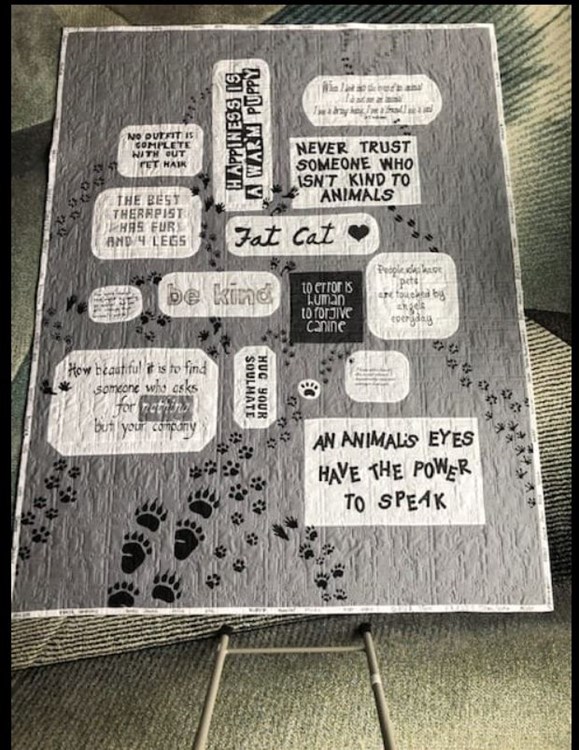 HAPPINESS IS
A WARM PUPPY
When I look into the eyes of an animal
I do not see an animal
I see a living being, I see a friend, I see a soul
NO OUTFIT IS
COMPLETE
WITH OUT
PET HAIR
NEVER TRUST
SOMEONE WHO
ISN'T KIND TO
ANIMALS
THE BEST
THERAPIST
HAS FUR
AND 4 LEGS
Fat Cat
People who have
pets
are touched by
angels
everyday
be kind
to error is
human
to forgive
canine
How beautiful it is to find
someone who asks
for nothing
but your company
HUG YOUR
SOULMATE
AN ANIMAL'S EYES
HAVE THE POWER
TO SPEAK